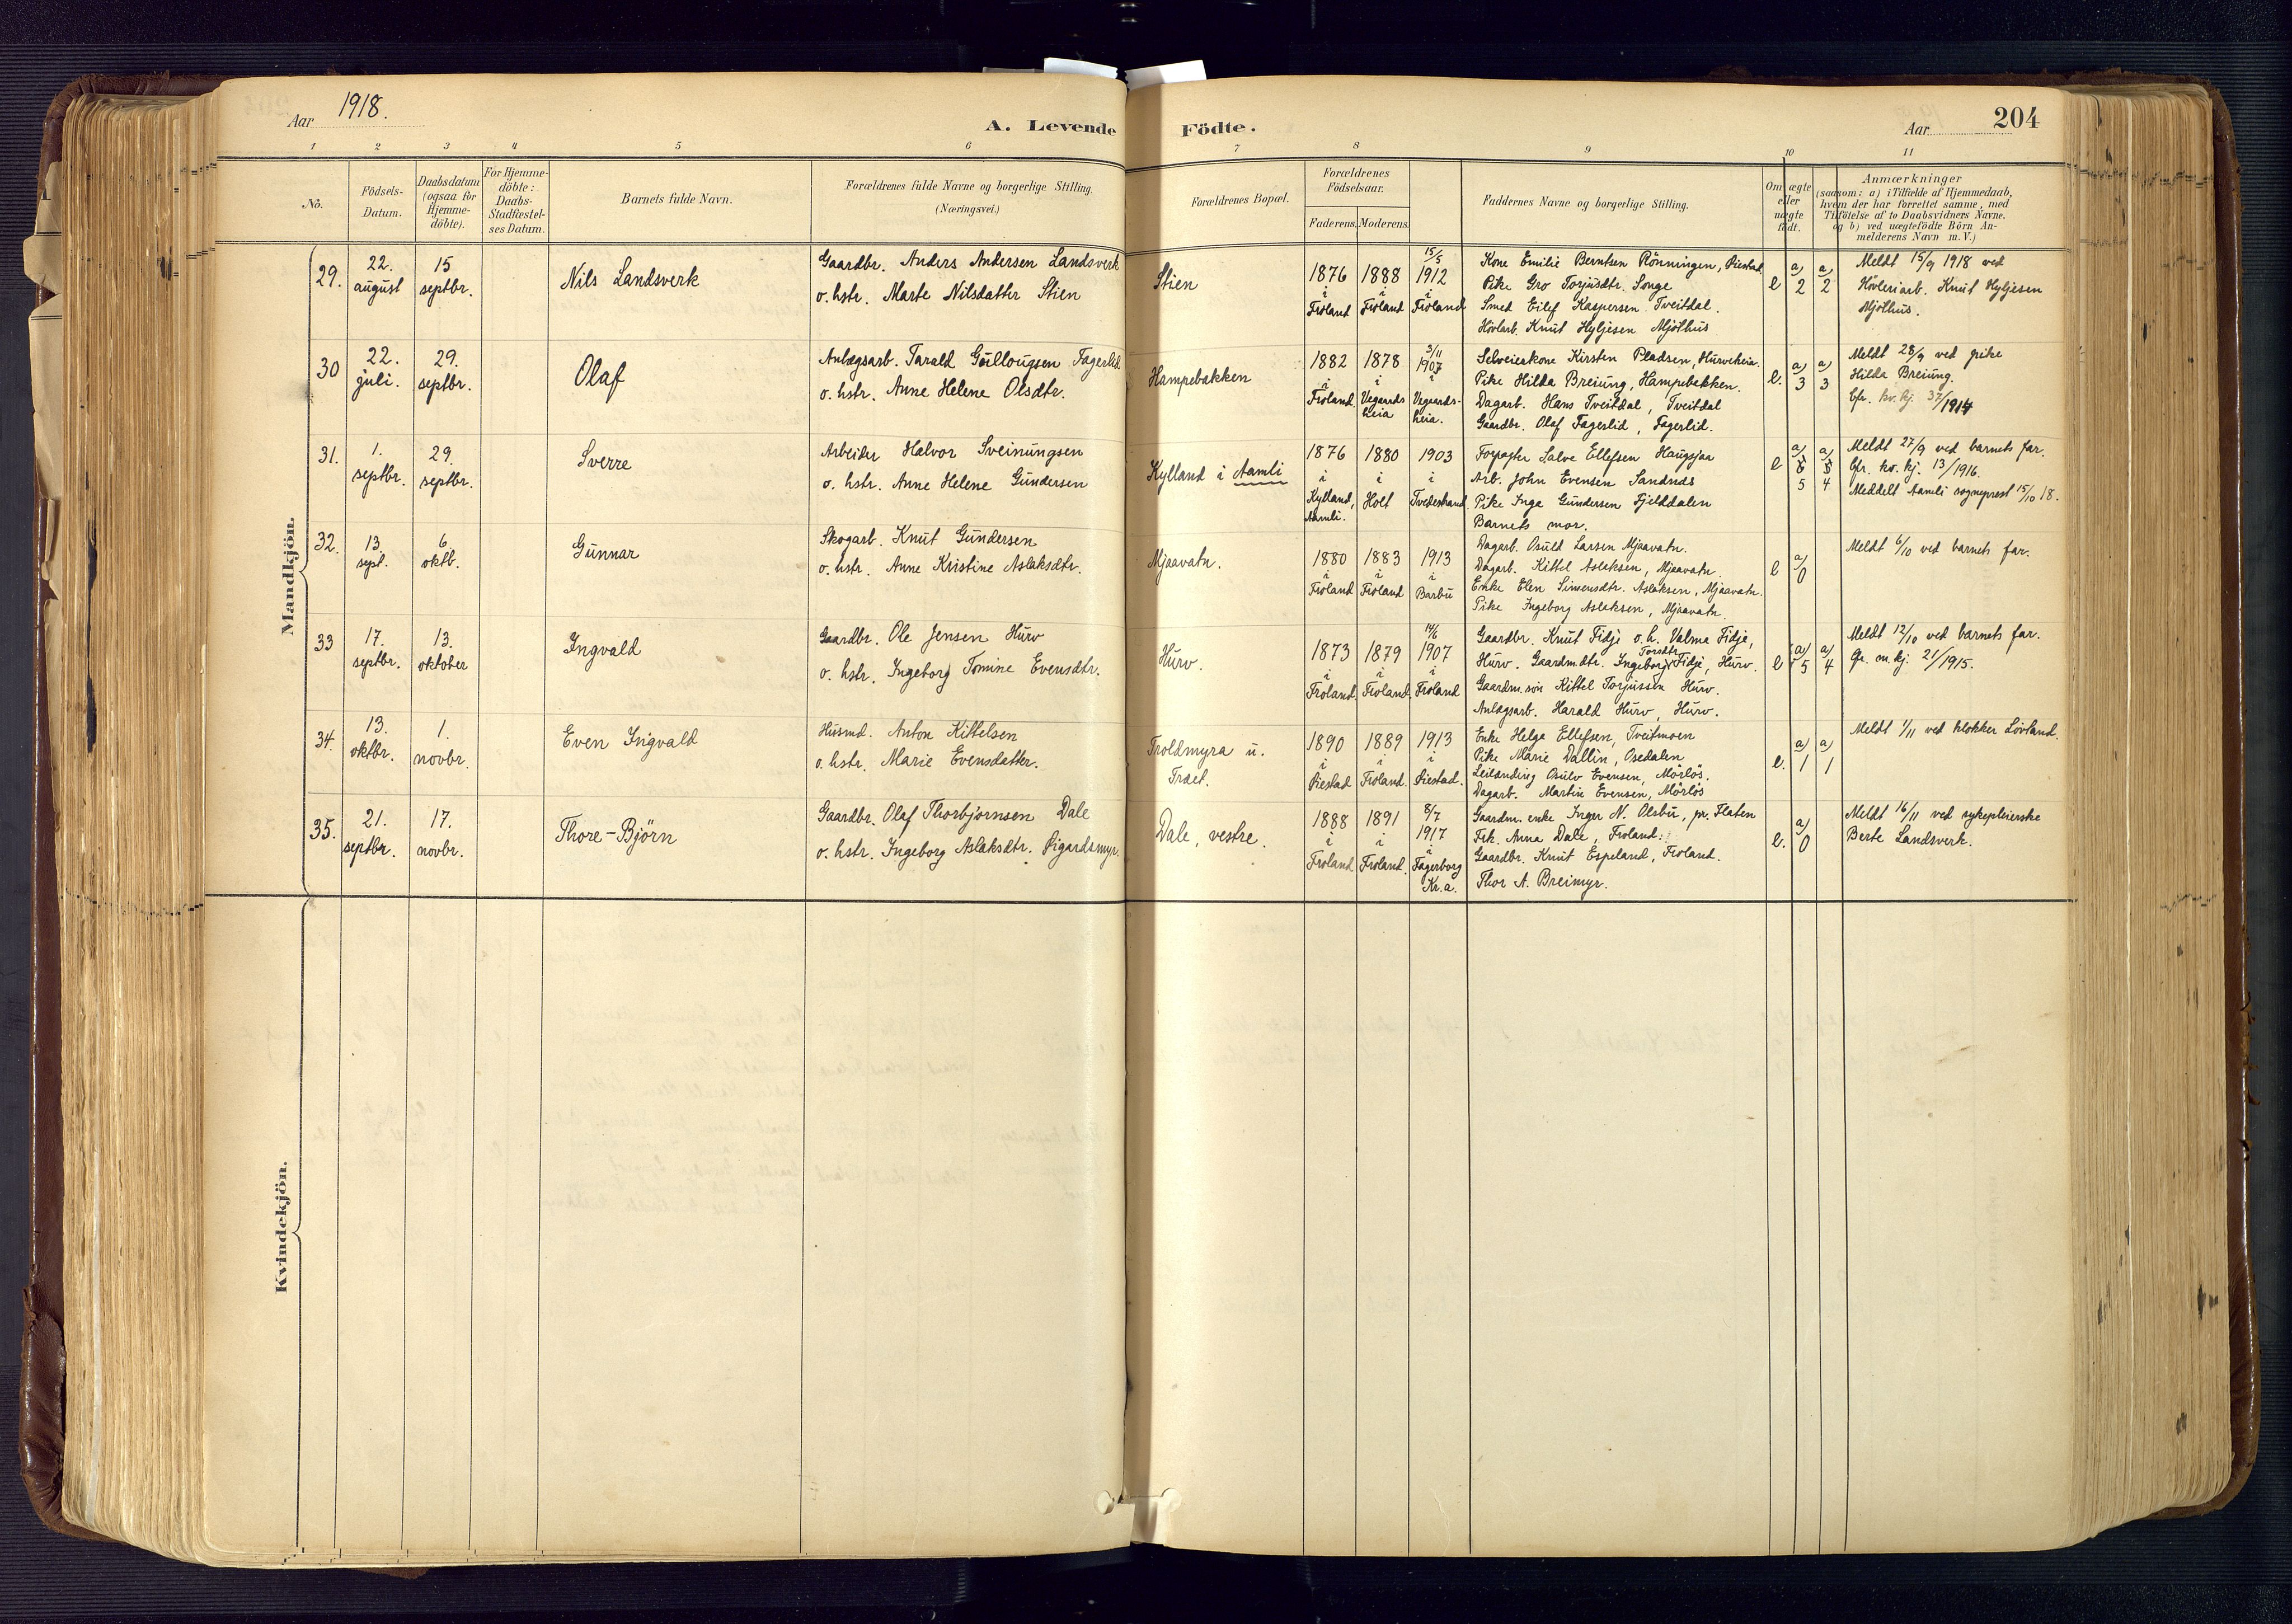 Aar 1918.
A. Levende Födte.
Aar 204
1 2 3 4 5 6 7 8 9 10 11
No.
Födsels-Datum.
Daabsdatum (ogsaa for Hjemme-döbte).
For Hjemme-döbte: Daabs-Stadfæstel-ses Datum.
Barnets fulde Navn.
Forældrenes fulde Navne og borgerlige Stilling.
(Næringsvei.)
Forældrenes Bopæl.
Forældrenes Födselsaar.
Faderens. Moderens.
Faddernes Navne og borgerlige Stilling.
Om ægte eller uægte født.
Anmærkninger
(saasom: a) i Tilfælde af Hjemmedaab,
hvem der har forrettet samme, med
Tilföielse af to Daabsvidners Navne.
og b) ved uægtefödte Börn An-
melderens Navn m. V.)
Mandkjön.
29. 22. august 15 septbr. Nils Landsverk
Gaardbr. Anders Andersen Landsverk
o. hstr. Marte Nilsdatter Stien
Stien
1876 i Froland 1888 i Froland 15/5 1912 i Froland
Kone Emilie Berntsen Rönningen, Öiestad
Pike Gro Torjusdtr. Songe
Smed Eilef Kaspersen Tveitdal.
Hövlarb. Knut Hyljesen Mjölhus
e a/2 a/2
Meldt 15/9 1918 ved
Hövleriarb. Knut Hyljesen
Mjölhus.
30 22. juli. 29. septbr. Olaf
Anlægsarb. Tarald Gulleugsen Fagerlid
o. hstr. Anne Helene Olsdtr.
Hampebakken
1882 i Froland 1878 i Vegaardsheia 3/11 1907 i Vegaards-heia.
Selveierkone Kirsten Pladsen, Hurveheia.
Pike Hilda Breiung, Hampebakken.
Dagarb. Hans Tveitdal, Tveitdal
Gaardbr. Olaf Fagerlid, Fagerlid.
e. a/3 a/3
Meldt 28/9 ved pike
Hilda Breiung.
Cfr. kv. kj. 37/1914
31. 1. septbr. 29. septbr. Sverre
Arbeider Halvor Sveinungsen
o. hstr. Anne Helene Gundersen
Kylland i Aamli
1876 i Kylland, Aamli. 1880 i Holt 1903 i Tvedestrand
Forpagter Salve Ellefsen Haugsjaa
Arb. John Evensen Sandnes
Pike Inga Gundersen Fjelddalen
Barnets mor.
e a/5 a/4
Meldt 27/9 ved barnets far.
Cfr. kv. kj. 13/1916.
Meddelt Aamli sogneprest 15/10 18.
32. 13. sept. 6. oktb. Gunnar
Skogarb. Knut Gundersen
o. hstr. Anne Kristine Aslaksdtr.
Mjaavatn.
1880 i Froland 1883 i Froland 1913 i Barbu
Dagarb. Osuld Larsen Mjaavatn.
Dagarb. Kittel Aslaksen, Mjaavatn.
Enke Elen Simensdtr. Aslaksen, Mjaavatn.
Pike Ingeborg Aslaksen, Mjaavatn.
e a/0
Meldt 6/10 ved barnets far.
33 17. septbr. 13. oktober Ingvald
Gaardbr. Ole Jensen Hurv
o. hstr. Ingeborg Tomine Evensdtr.
Hurv.
1873 i Froland 1879 i Froland 14/6 1907 i Froland
Gaardbr. Knut Fidje o. h. Valma Fidje,
Hurv. Gaardm.dtr. Ingeborg Torsdtr. Fidje, Hurv.
Gaardm.sön Kittel Torjussen Hurv.
Anlægsarb. Harald Hurv, Hurv.
e a/5 a/4
Meldt 12/10 ved barnets far.
Cfr. m. kj. 21/1915.
34. 13. oktbr. 1. novbr. Even Ingvald
Husmd. Anton Kittelsen
o. hstr. Marie Evensdatter.
Froldmyra u. Træet.
1890 i Öiestad 1889 i Froland. 1913 i Öiestad.
Enke Helga Ellefsen, Tveitmoen
Pike Marie Dallin, Osedalen
Leilending Osulv Evensen, Mörlös.
Dagarb. Martin Evensen, Mörlös
e. a/1 a/1
Meldt 1/11 ved klokker Lövland.
35. 21. septbr. 17. novbr. Thore-Björn
Gaardbr. Olaf Thorbjørnsen Dale
o. hstr. Ingeborg Aslaksdtr. Øigardsmyr.
Dale, vestre.
1888 i Froland 1891 i Froland. 8/7 1917 i Fagerborg Kr.a.
Gaardm. enke Inger N. Olsbu, pr. Flaten
Frk. Anna Dale, Froland.
Gaardbr. Knut Espeland, Froland.
Thor A. Breimyr.
e. a/0
Meldt 16/11 ved sykepleierske
Berte Landsverk.
Kvindekjön.